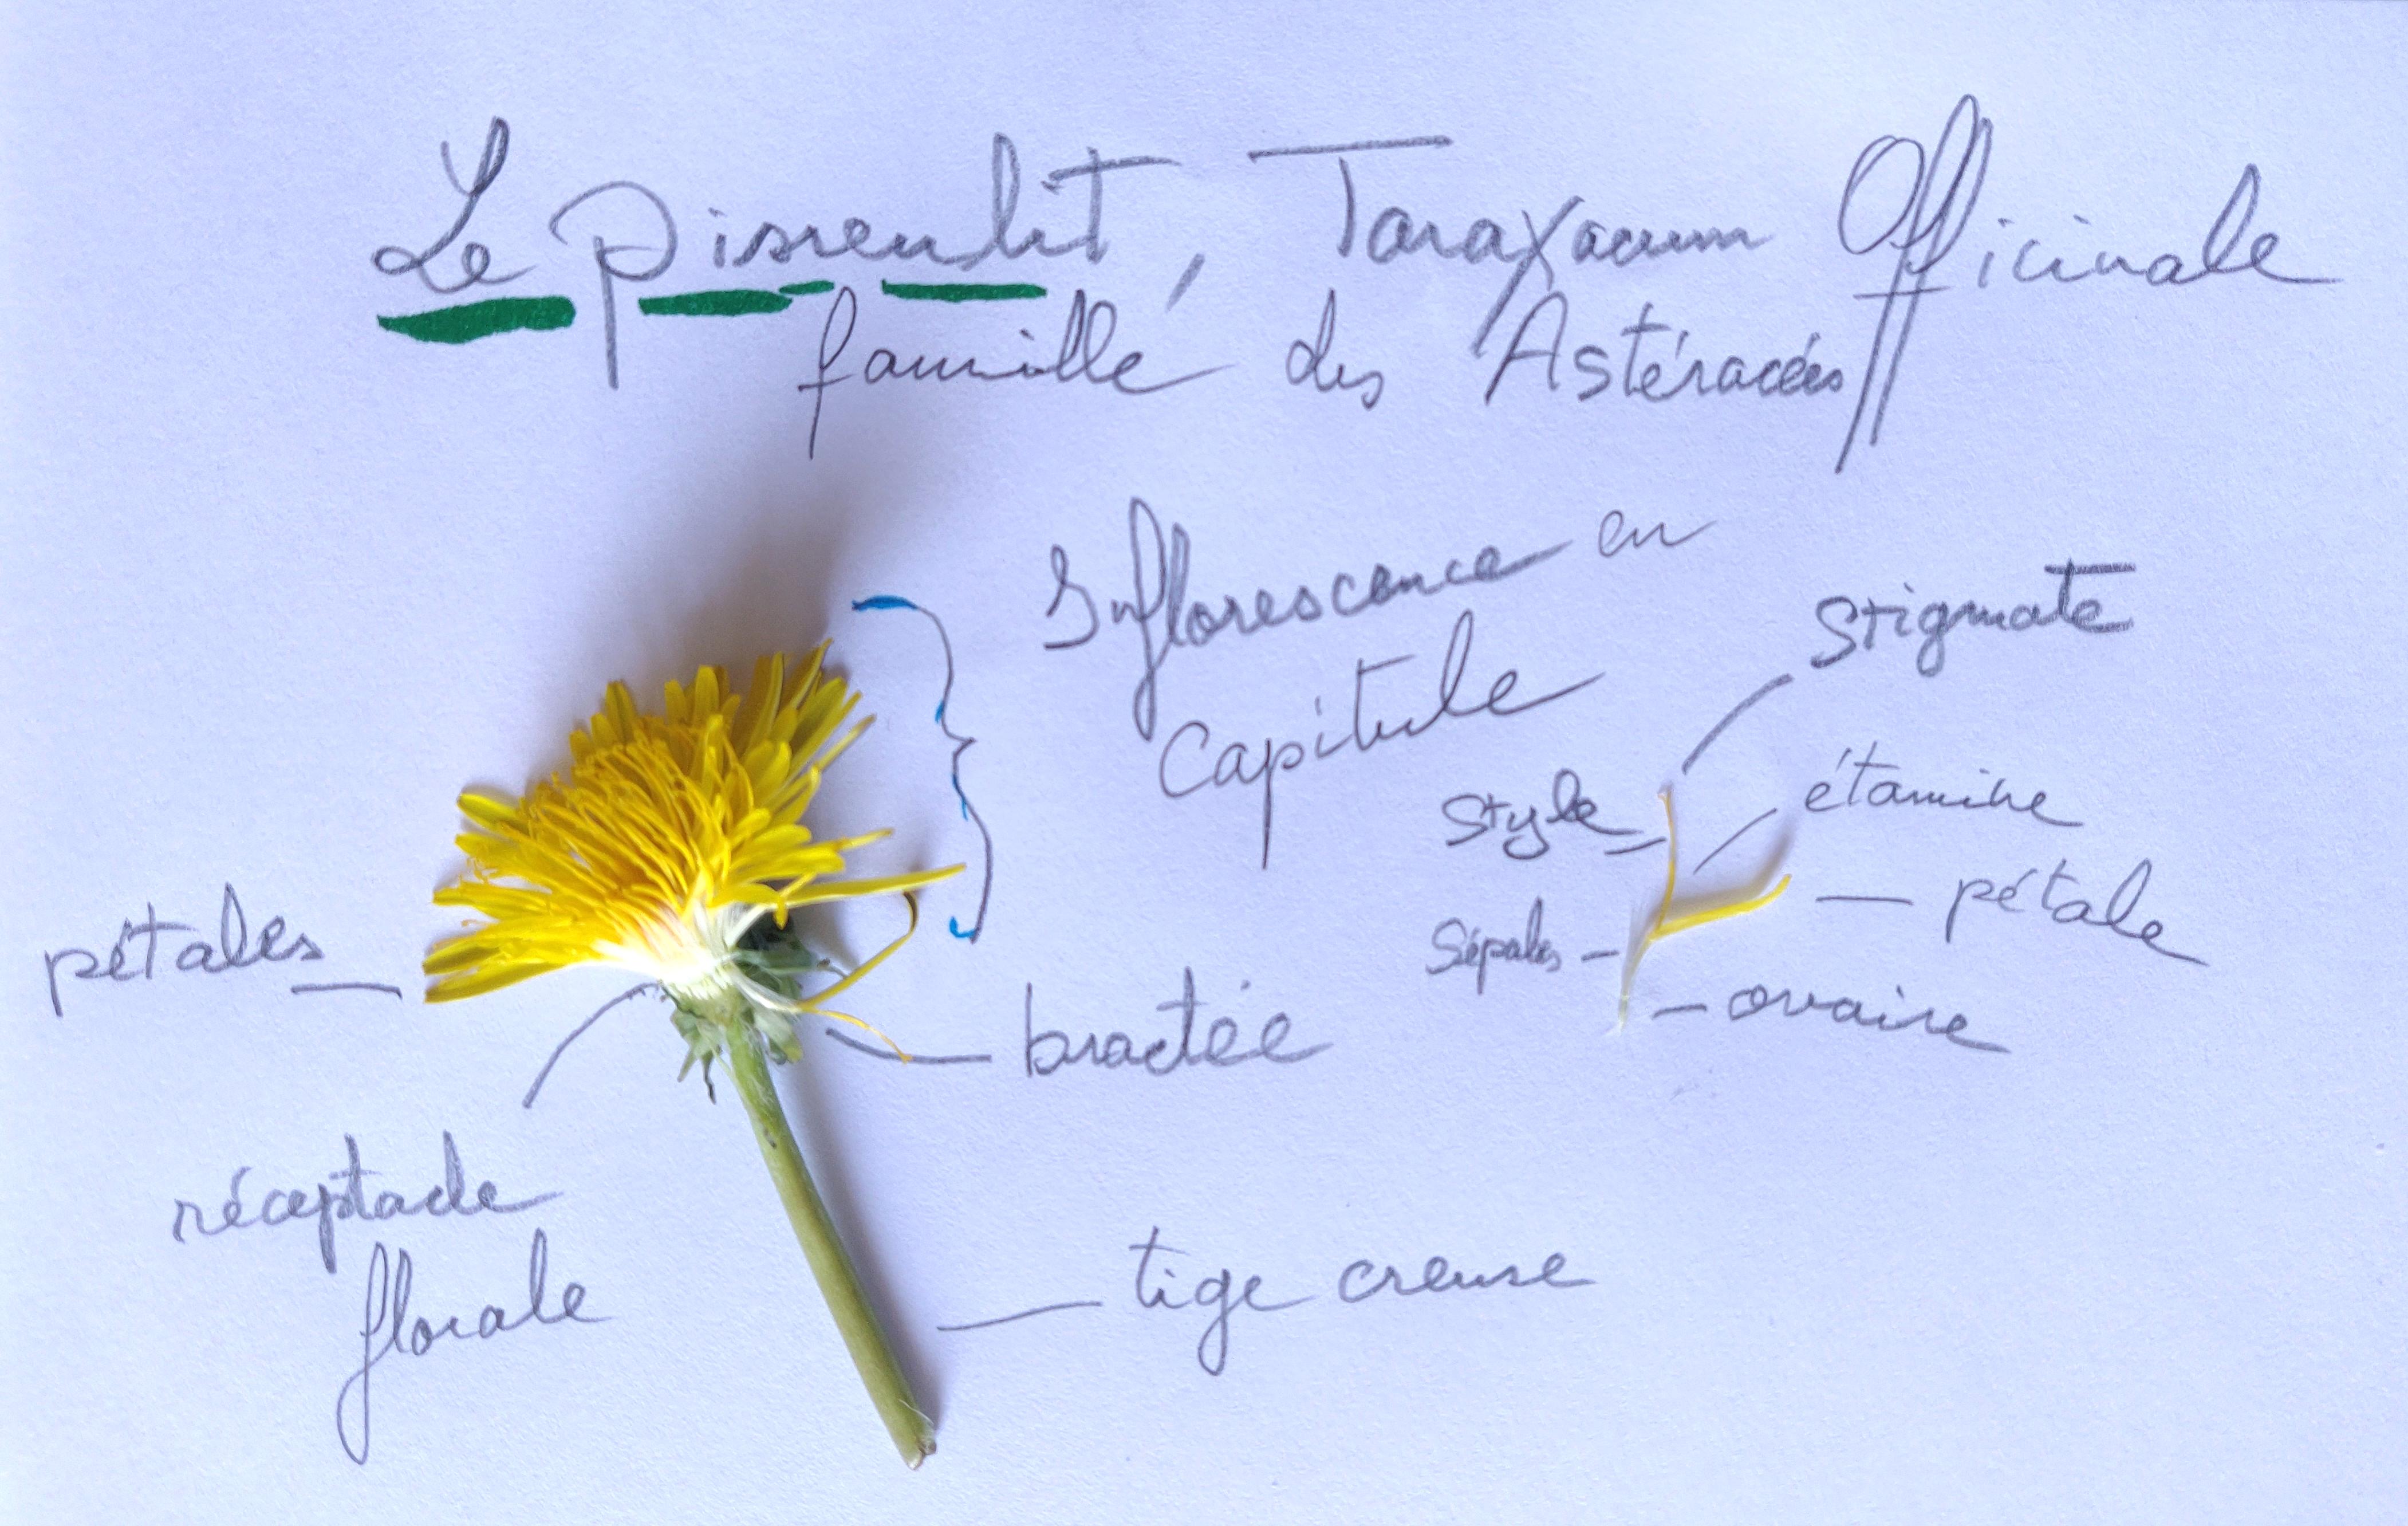 Le pissenlit, Taraxacum Officinale
famille des Astéracées
Inflorescence en
Capitule
Stigmate
Style
étamine
pétale
Sépales
ovaire
pétales
bractée
réceptacle
florale
tige creuse